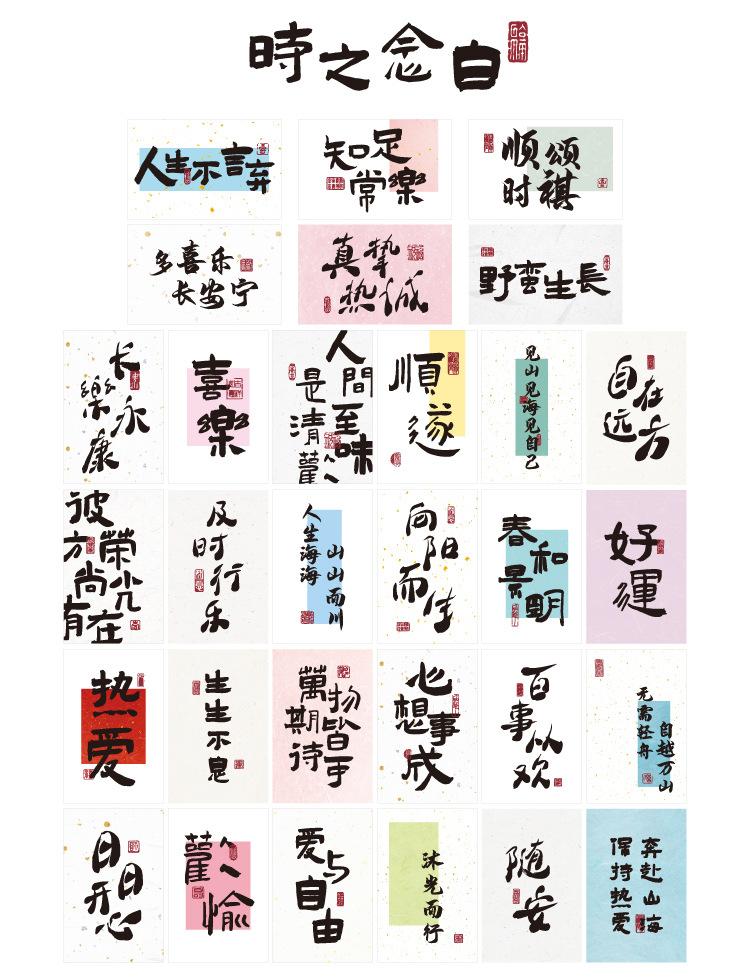 時之念白
人生不言弃
知足
常樂
顺颂
时祺
多喜乐
长安宁
真挚
热诚
野蛮生長
长樂永康
喜樂
人間至味
是清歡
順遂
见山见海见自己
自在
远方
彼方尚有
榮光在
及时行乐
人生海海
山山而川
向阳而生
春和
景明
好運
热爱
生生不息
萬物皆可
期待
心想事成
百事从欢
无需轻舟
自越万山
日日开心
歡愉
爱与自由
沐光而行
随安
奔赴山海
保持热爱